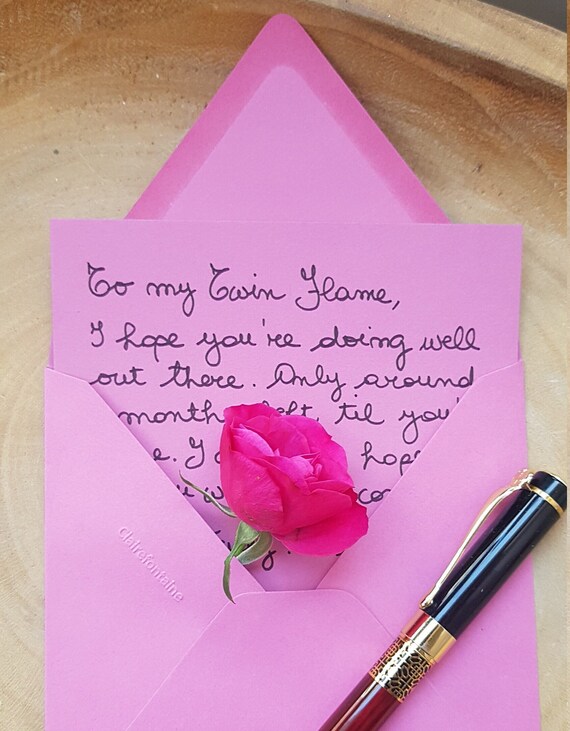 To my Twin Flame,
I hope you're doing well
out there. Only around
month left, til you'
I hope
Clairefontaine